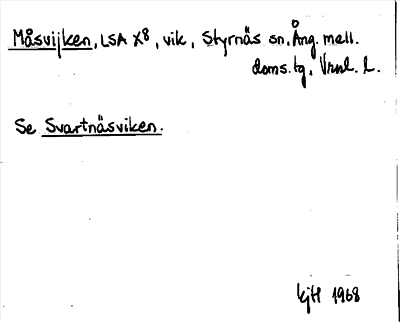 Måsvijken, LSA X8, vik, Styrnäs sn, Ång. mell.
doms.tg, Vrnl. l.
Se Svartnäsviken.
KjH 1968